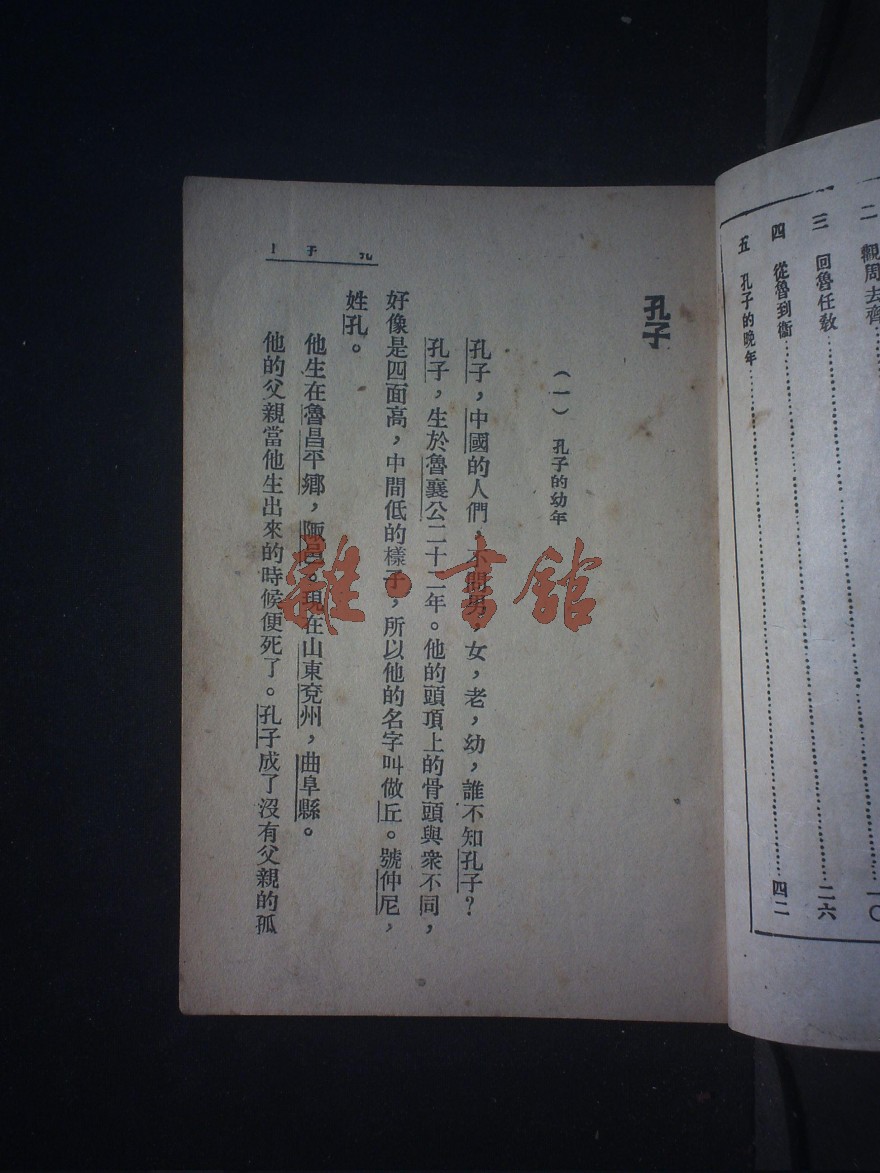 二 觀周去齊…………一〇
三 回魯任教…………二六
四 從魯到衞…………四二
五 孔子的晚年…………
孔子
(一) 孔子的幼年
孔子,中國的人們,不問男,女,老,幼,誰不知孔子?
孔子,生於魯襄公二十二年。他的頭頂上的骨頭與衆不同,
好像是四面高,中間低的樣子,所以他的名字叫做丘。號仲尼,
姓孔。
他生在魯昌平鄉,陬邑。現在山東兗州,曲阜縣。
他的父親當他生出來的時候便死了。孔子成了沒有父親的孤
孔子 1
雜·書館